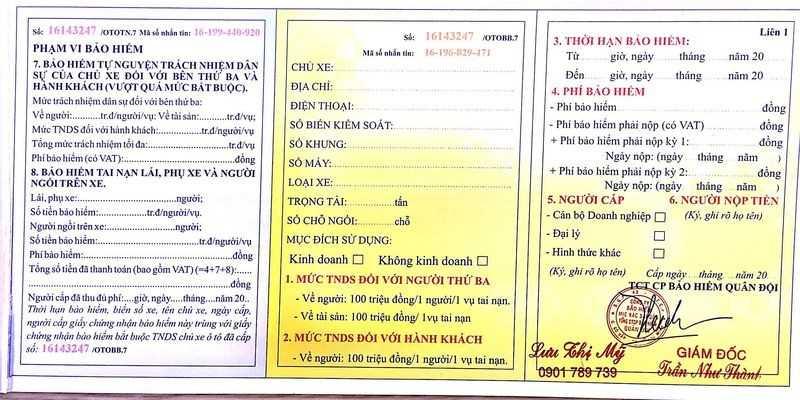 Số: 16143247 /OTOTN.7 Mã số nhắn tin: 16-199-440-920
PHẠM VI BẢO HIỂM
7. BẢO HIỂM TỰ NGUYỆN TRÁCH NHIỆM DÂN
SỰ CỦA CHỦ XE ĐỐI VỚI BÊN THỨ BA VÀ
HÀNH KHÁCH (VƯỢT QUÁ MỨC BẮT BUỘC).
Mức trách nhiệm dân sự đối với bên thứ ba:
Về người:..........tr.đ/người/vụ; Về tài sản:..........tr.đ/vụ;
Mức TNDS đối với hành khách:..........tr.đ/người/vụ
Tổng mức trách nhiệm tối đa:..........tr.đ/vụ
Phí bảo hiểm (có VAT):..........đồng
8. BẢO HIỂM TAI NẠN LÁI, PHỤ XE VÀ NGƯỜI
NGỒI TRÊN XE.
Lái, phụ xe:..........người;
Số tiền bảo hiểm:..........tr.đ/người/vụ.
Người ngồi trên xe:..........người;
Số tiền bảo hiểm..........tr.đ/người/vụ
Phí bảo hiểm:..........đồng
Tổng số tiền đã thanh toán (bao gồm VAT) (=4+7+8):
..........đồng
Người cấp đã thu đủ phí:....giờ, ngày.....tháng....năm 20..
Thời hạn bảo hiểm, biển số xe, tên chủ xe, ngày cấp,
người cấp giấy chứng nhận bảo hiểm này trùng với giấy
chứng nhận bảo hiểm bắt buộc TNDS chủ xe ô tô đã cấp
số: 16143247 /OTOBB.7
Số: 16143247 /OTOBB.7
Mã số nhắn tin: 16-196-829-471
CHỦ XE:
ĐỊA CHỈ:
ĐIỆN THOẠI:
SỐ BIỂN KIỂM SOÁT:
SỐ KHUNG:
SỐ MÁY:
LOẠI XE:
TRỌNG TẢI:..........tấn
SỐ CHỖ NGỒI:..........chỗ
MỤC ĐÍCH SỬ DỤNG:
Kinh doanh ☐ Không kinh doanh ☐
1. MỨC TNDS ĐỐI VỚI NGƯỜI THỨ BA
- Về người: 100 triệu đồng/1 người/1 vụ tai nạn.
- Về tài sản: 100 triệu đồng/ 1vụ tai nạn
2. MỨC TNDS ĐỐI VỚI HÀNH KHÁCH
- Về người: 100 triệu đồng/1 người/1 vụ tai nạn.
Liên 1
3. THỜI HẠN BẢO HIỂM:
Từ giờ, ngày tháng năm 20
Đến giờ, ngày tháng năm 20
4. PHÍ BẢO HIỂM
- Phí bảo hiểm đồng
- Phí bảo hiểm phải nộp (có VAT) đồng
+ Phí bảo hiểm phải nộp kỳ 1: đồng
Ngày nộp: (ngày tháng năm )
+ Phí bảo hiểm phải nộp kỳ 2: đồng
Ngày nộp: (ngày tháng năm )
5. NGƯỜI CẤP 6. NGƯỜI NỘP TIỀN
- Cán bộ Doanh nghiệp ☐ (Ký, ghi rõ họ tên)
- Đại lý ☐
- Hình thức khác ☐
(Ký, ghi rõ họ tên) Cấp ngày..... tháng..... năm 20
TCT CP BẢO HIỂM QUÂN ĐỘI
Lưu Thị Mỹ
0901 789 739
GIÁM ĐỐC
Trần Như Thành